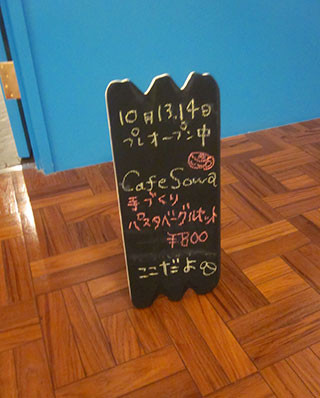 10月13,14日
プレオープン中
Cafe Sowa
手づくり
パスタベーグルセット
¥800
ここだよ